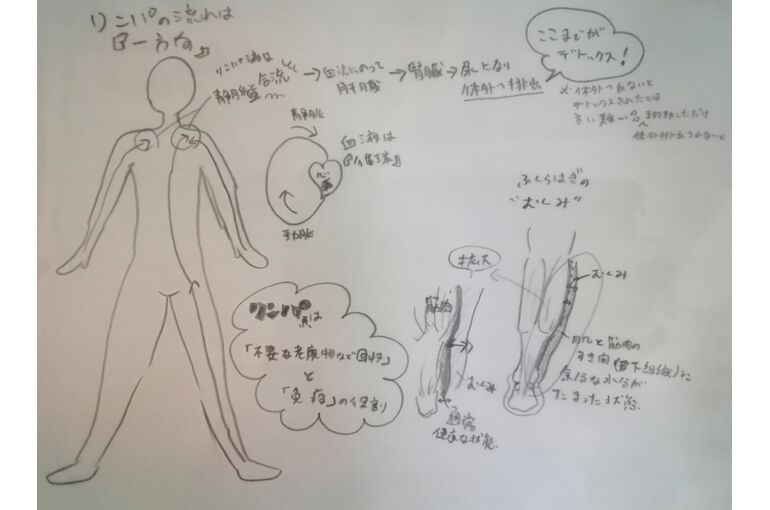 リンパの流れは
『一方向』
リンパ液は
静脈に合流
→血流にのって
肝臓
→腎臓→尿になり
体外へ排出
ここまでが
デトックス!
※体外へ出ないと
デトックスされたとは
言い難い
体外排出しないと
静脈
血液は
心臓
動脈
リンパ液は
「不要な老廃物など回収」
と
「免疫」の役割
ふくらはぎの
"むくみ"
拡大
筋肉
むくみ
通常
健康な状態
むくみ
肌と筋肉の
すき間(皮下組織)に
余分な水分が
たまった状態